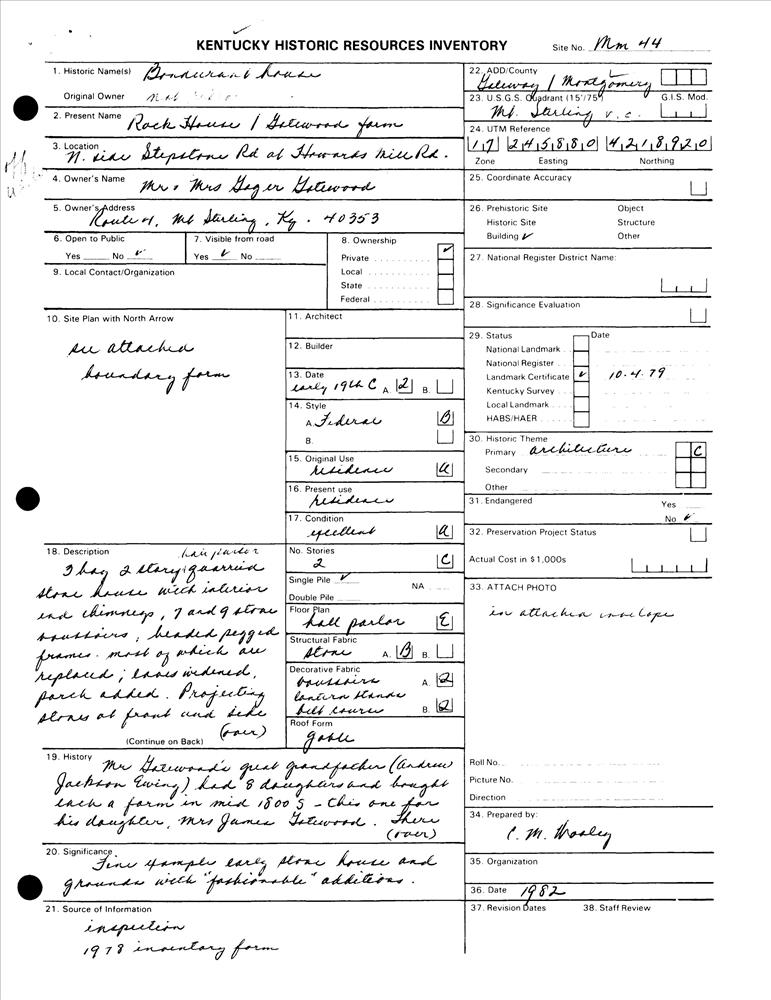 KENTUCKY HISTORIC RESOURCES INVENTORY
Site No. Mm 44
1. Historic Name(s) Bondurant house
Original Owner
2. Present Name Rock House / Gatewood farm
3. Location N. side Stepstone Rd at Howards Mill Rd.
4. Owner's Name Mr & Mrs Gager Gatewood
5. Owner's Address Route 4, Mt Sterling, Ky. 40353
6. Open to Public
Yes No ✓
7. Visible from road
Yes ✓ No
8. Ownership
Private ✓
Local
State
Federal
9. Local Contact/Organization
10. Site Plan with North Arrow
see attached
boundary form
11. Architect
12. Builder
13. Date
early 19th C A. 2 B.
14. Style
A. Federal B
B.
15. Original Use
residence a
16. Present use
residence
17. Condition
excellent a
18. Description hall parlor
3 bay 2 story quarried
stone house with interior
end chimneys, 7 and 9 stone
voussoirs, beaded pegged
frames most of which are
replaced; eaves widened,
porch added. Projecting
stones at front and side
(over)
(Continue on Back)
No. Stories
2 C
Single Pile ✓
NA
Double Pile
Floor Plan
hall parlor E
Structural Fabric
stone A. B B.
Decorative Fabric
voussoirs A. 2
lantern stands
belt course B. 2
Roof Form
gable
19. History
Mr Gatewood's great grandfather (Andrew
Jackson Ewing) had 8 daughters and bought
each a farm in mid 1800s - this one for
his daughter, Mrs James Gatewood. There
(over)
20. Significance
Fine example early stone house and
grounds with "fashionable" additions.
21. Source of Information
inspection
1978 inventory form
22. ADD/County
Gateway / Montgomery
23. U.S.G.S. Quadrant (15'/75') G.I.S. Mod.
Mt. Sterling v.c.
24. UTM Reference
17 245880 4218920
Zone Easting Northing
25. Coordinate Accuracy
26. Prehistoric Site Object
Historic Site Structure
Building ✓ Other
27. National Register District Name:
28. Significance Evaluation
29. Status Date
National Landmark
National Register
Landmark Certificate ✓ 10.4.79
Kentucky Survey
Local Landmark
HABS/HAER
30. Historic Theme
Primary architecture C
Secondary
Other
31. Endangered Yes
No ✓
32. Preservation Project Status
Actual Cost in $1,000s
33. ATTACH PHOTO
in attached envelope
Roll No.
Picture No.
Direction
34. Prepared by:
C. M. Wooley
35. Organization
36. Date 1982
37. Revision Dates 38. Staff Review